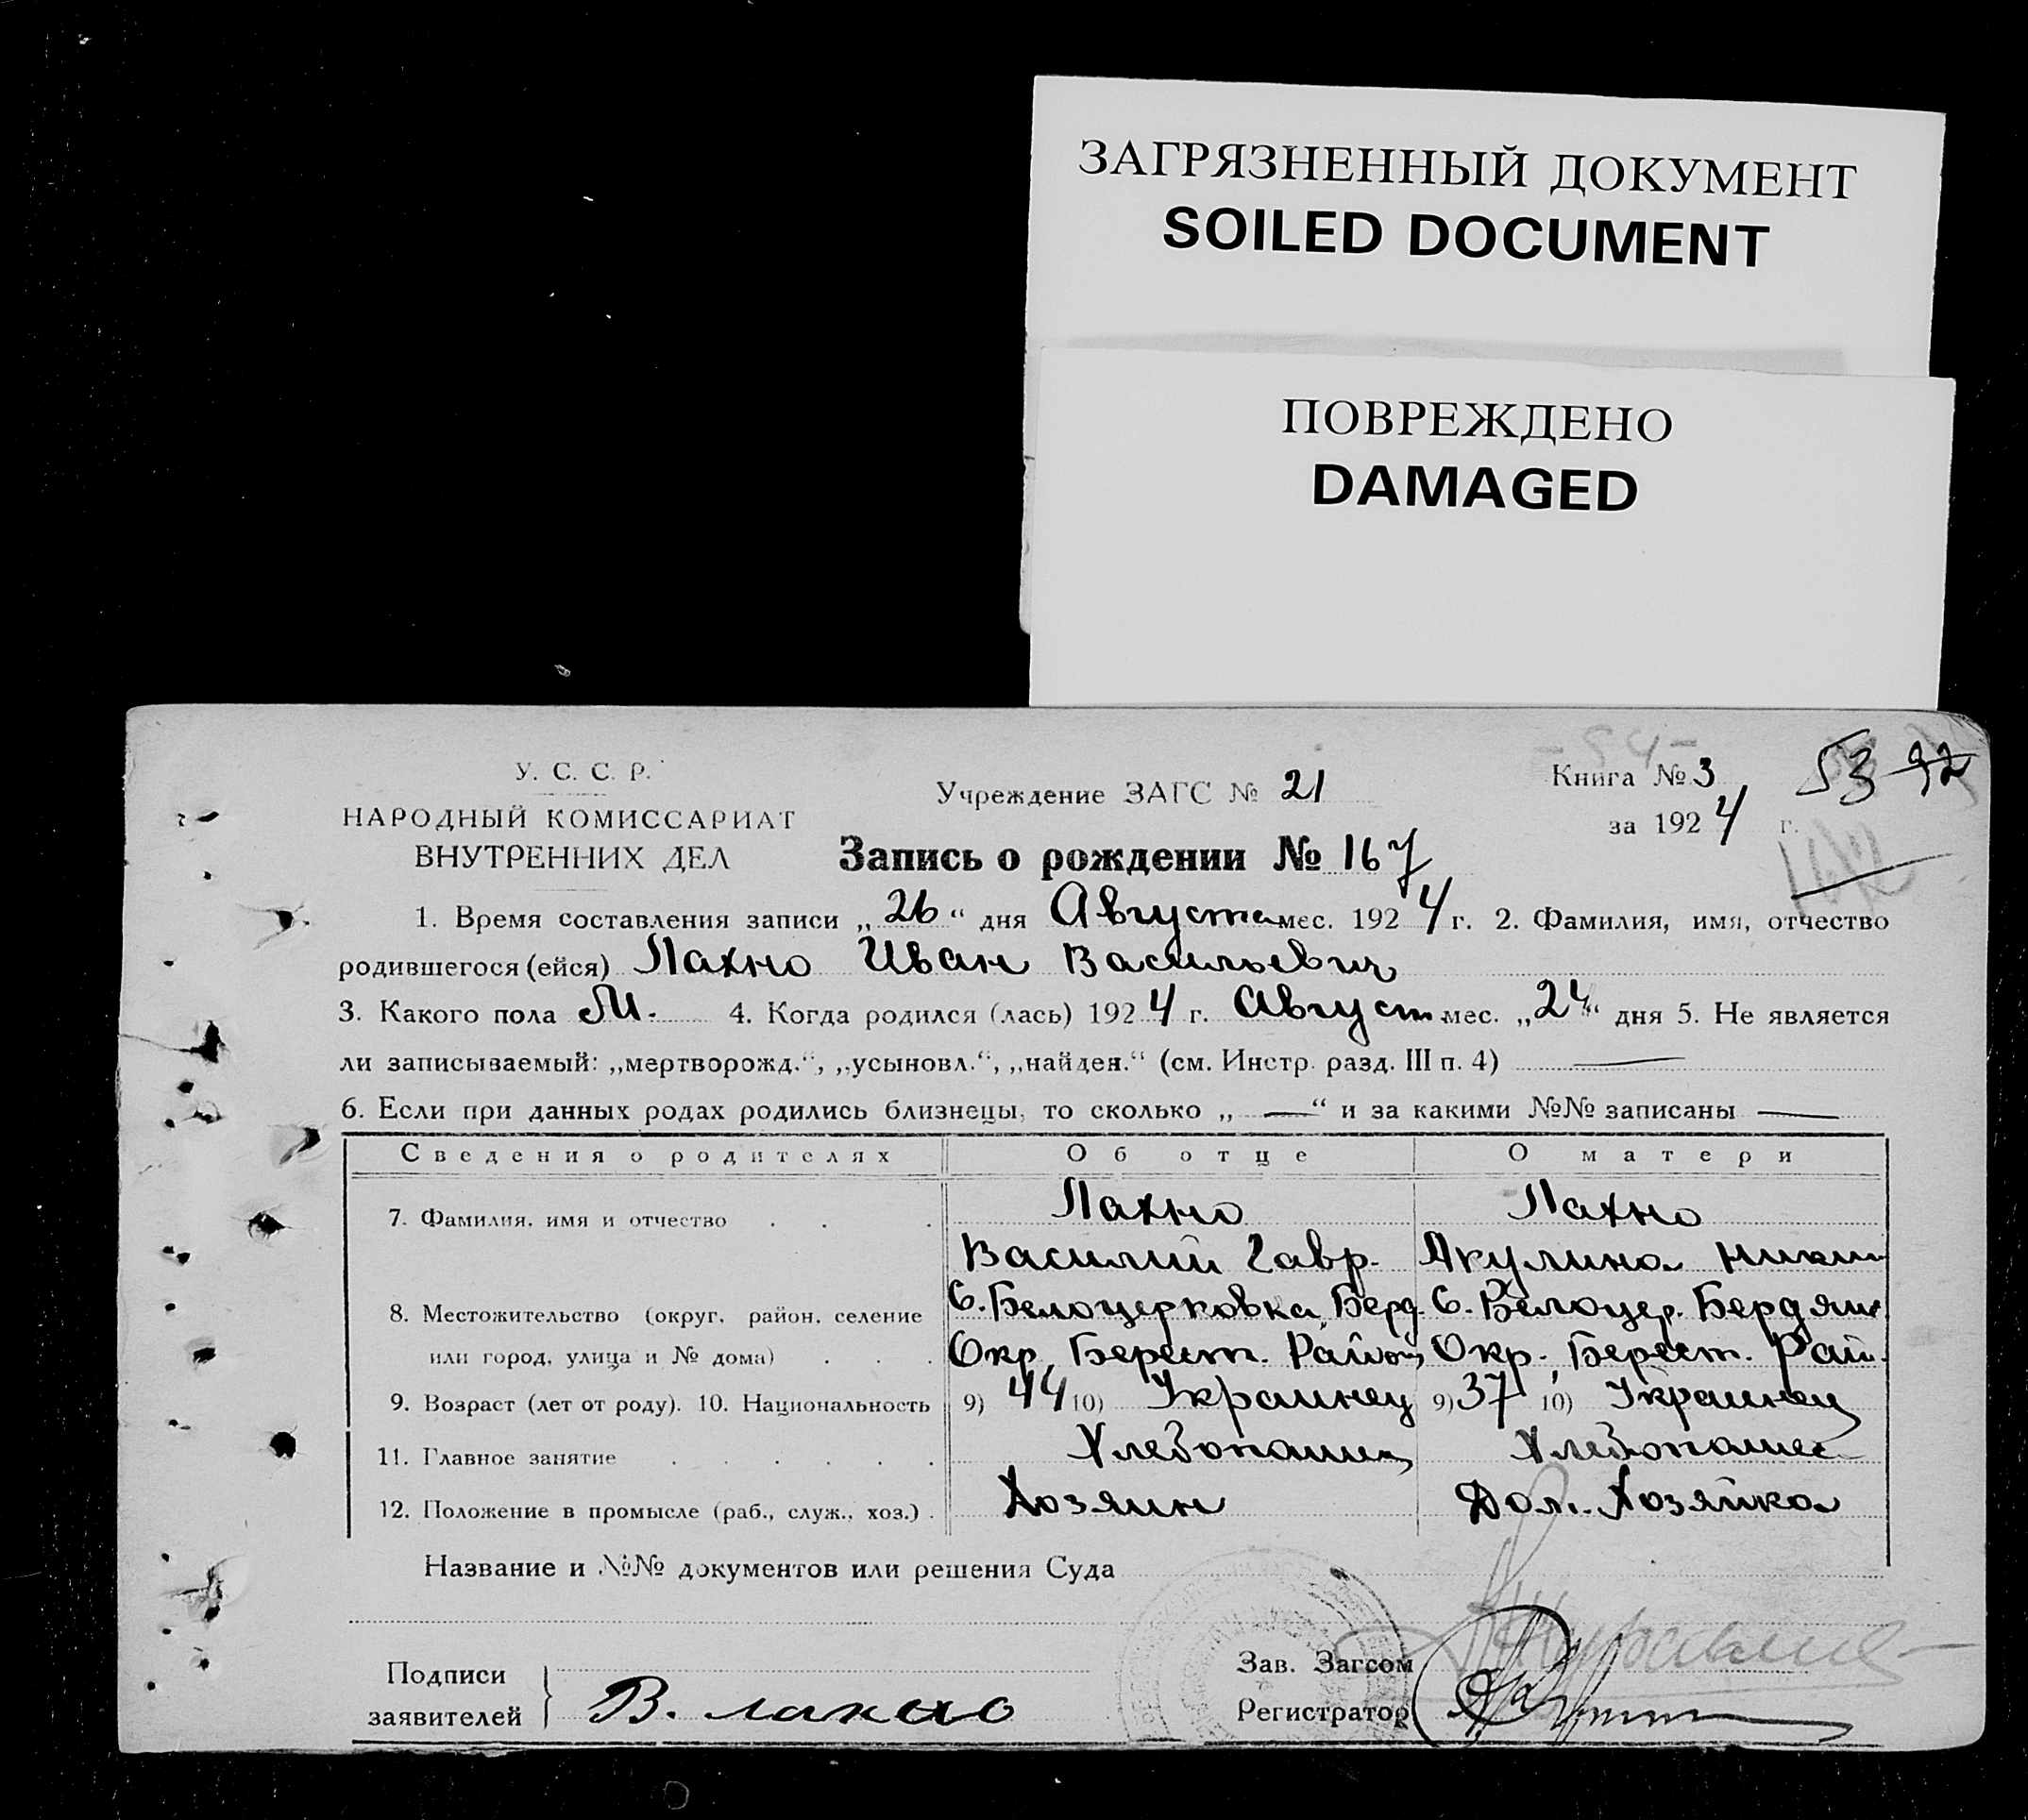 ЗАГРЯЗНЕННЫЙ ДОКУМЕНТ
SOILED DOCUMENT
ПОВРЕЖДЕНО
DAMAGED
- 54 -
53 92
У. С. С. Р.
НАРОДНЫЙ КОМИССАРИАТ
ВНУТРЕННИХ ДЕЛ
Учреждение ЗАГС № 21
Книга № 3
за 1924 г.
Запись о рождении № 167
1. Время составления записи „26“ дня Августа мес. 1924 г. 2. Фамилия, имя, отчество
родившегося (ейся) Лахно Иван Васильевич
3. Какого пола М. 4. Когда родился (лась) 1924 г. Август мес. „24“ дня 5. Не является
ли записываемый: „мертворожд.“, „усыновл.“, „найден.“ (см. Инстр. разд. III п. 4) —
6. Если при данных родах родились близнецы, то сколько „ — “ и за какими №№ записаны —
Сведения о родителях Об отце О матери
7. Фамилия, имя и отчество . . . Лахно Лахно
Василий Гавр. Акулина Никит
8. Местожительство (округ, район, селение С. Белоцерковка, Берд. С. Белоцер. Бердянс.
или город, улица и № дома) . . . Окр, Берест. Район Окр., Берест. Рай.
9. Возраст (лет от роду). 10. Национальность 9) 44 10) Украинец 9) 37 10) Украинец
11. Главное занятие . . . . . . Хлебопашец Хлебопашес
12. Положение в промысле (раб., служ., хоз.) . Хозяин Дом. Хозяйка
Название и №№ документов или решения Суда
Подписи
заявителей
В. лахно
Зав. Загсом
Регистратор